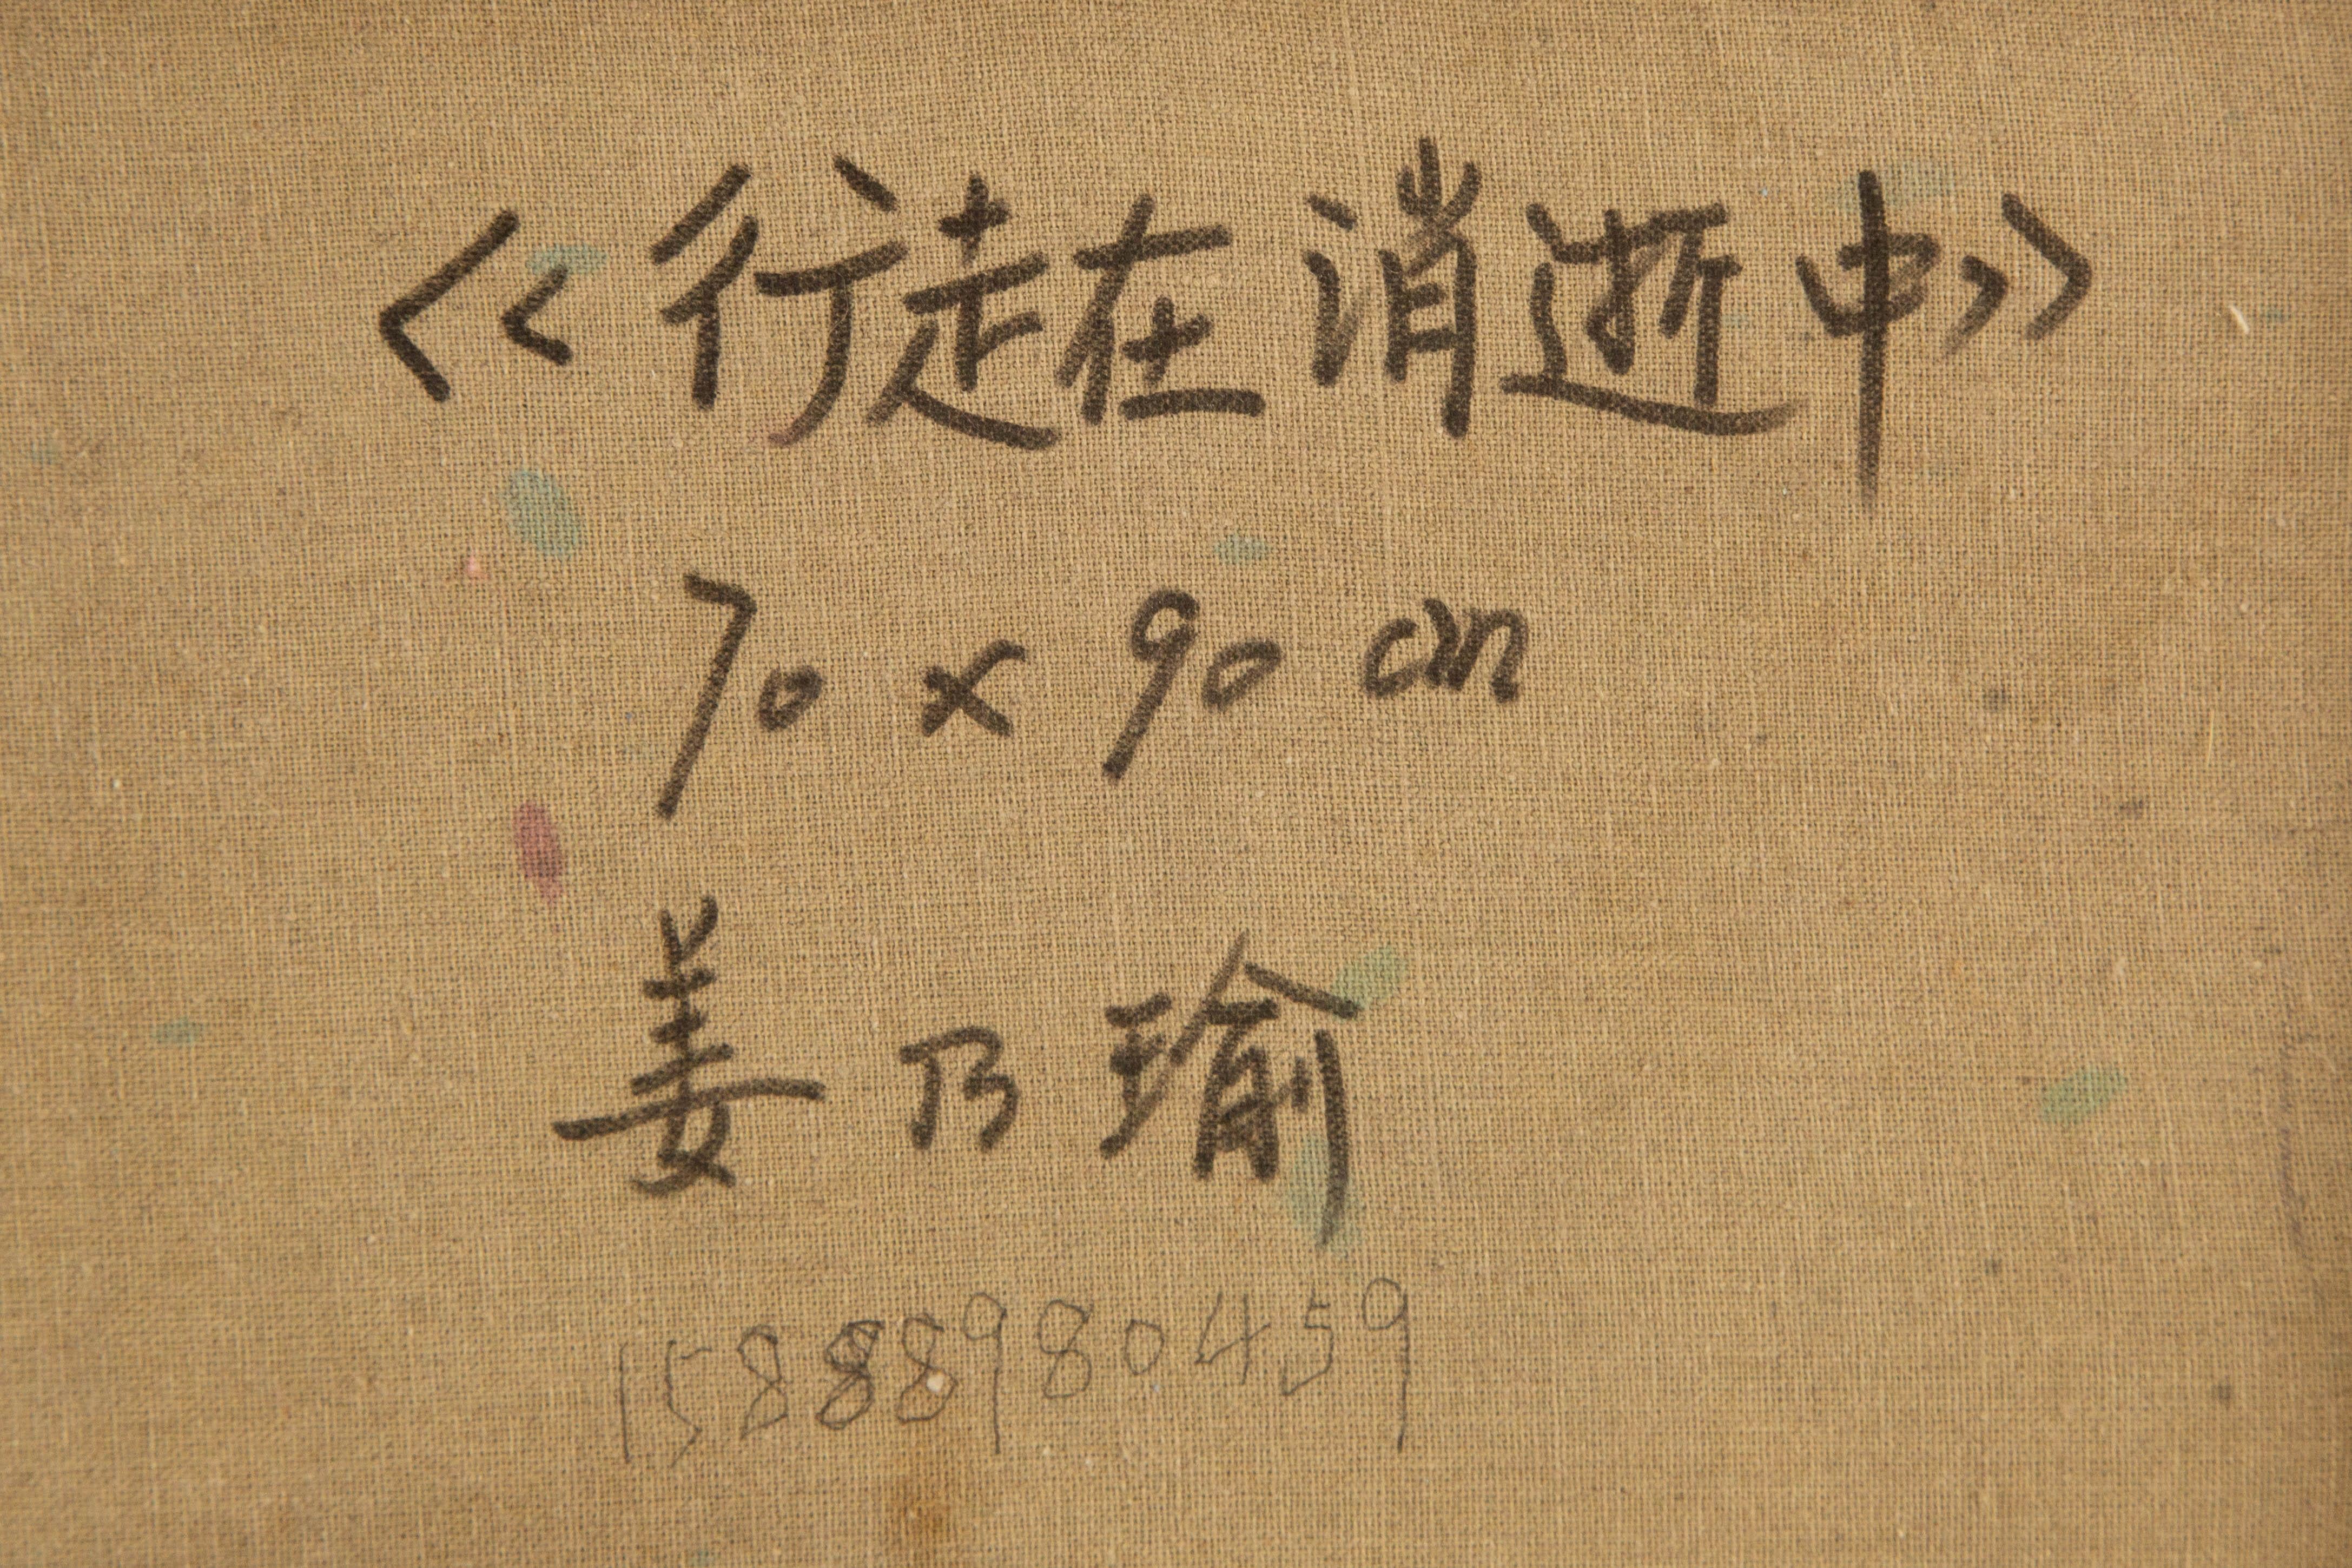 <<行走在消逝中>>
70 x 90 cm
姜乃瑜
15888980459